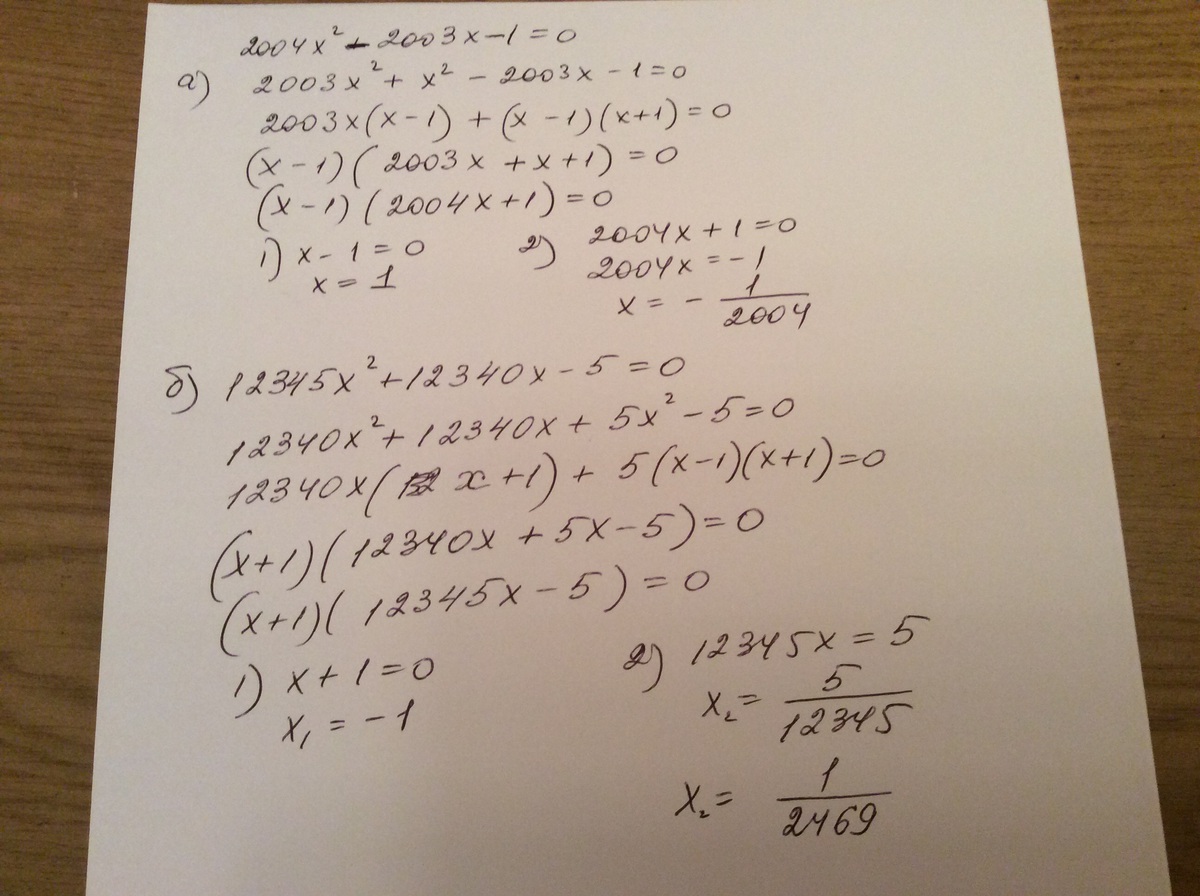 2004x² - 2003x - 1 = 0
а) 2003x² + x² - 2003x - 1 = 0
2003x(x - 1) + (x - 1)(x + 1) = 0
(x - 1)(2003x + x + 1) = 0
(x - 1)(2004x + 1) = 0
1) x - 1 = 0
x = 1
2) 2004x + 1 = 0
2004x = -1
x = - 1/2004
б) 12345x² + 12340x - 5 = 0
12340x² + 12340x + 5x² - 5 = 0
12340x(x + 1) + 5(x - 1)(x + 1) = 0
(x + 1)(12340x + 5x - 5) = 0
(x + 1)(12345x - 5) = 0
1) x + 1 = 0
x₁ = -1
2) 12345x = 5
x₂ = 5/12345
x₂ = 1/2469